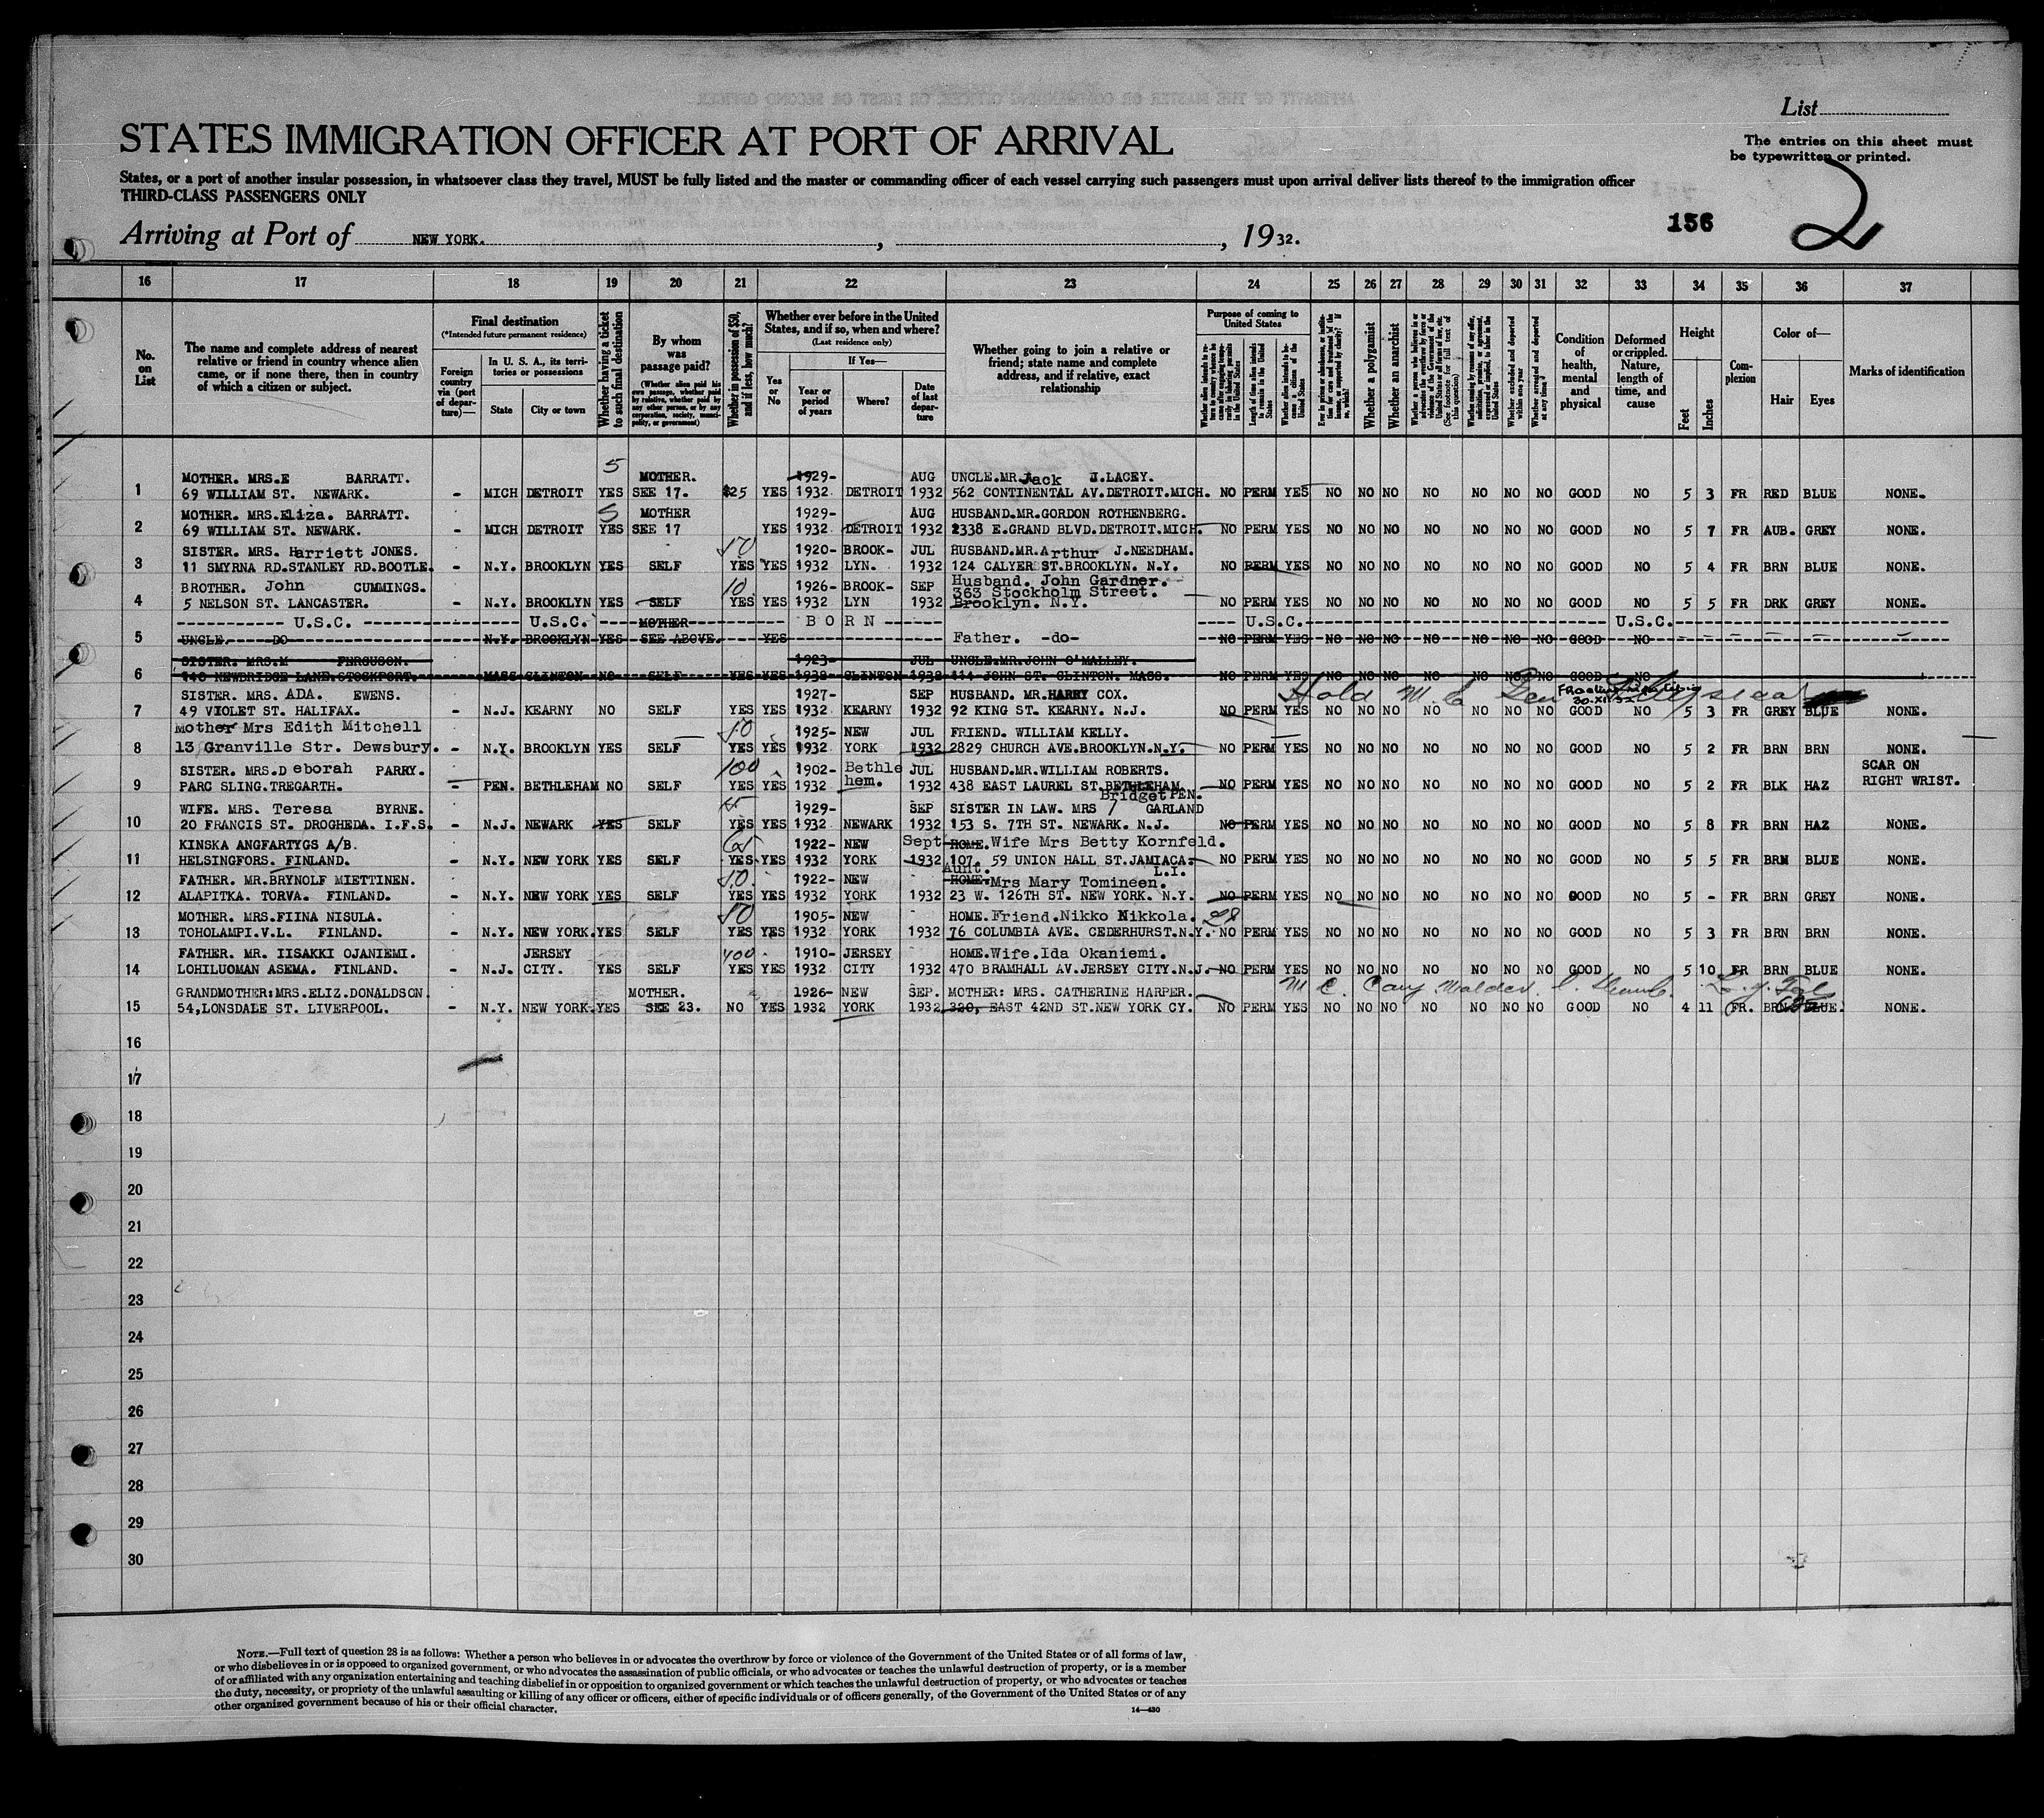 List
STATES IMMIGRATION OFFICER AT PORT OF ARRIVAL
The entries on this sheet must
be typewritten or printed.
States, or a port of another insular possession, in whatsoever class they travel, MUST be fully listed and the master or commanding officer of each vessel carrying such passengers must upon arrival deliver lists thereof to the immigration officer
THIRD-CLASS PASSENGERS ONLY
2
156
Arriving at Port of NEW YORK. , , 1932.
16 17 18 19 20 21 22 23 24 25 26 27 28 29 30 31 32 33 34 35 36 37
No. on List
The name and complete address of nearest relative or friend in country whence alien came, or if none there, then in country of which a citizen or subject.
Final destination
(*Intended future permanent residence)
Foreign country via (port of departure)—
In U. S. A., its territories or possessions
State
City or town
Whether having a ticket to such final destination
By whom was passage paid?
(Whether alien paid his own passage, whether paid by relative, whether paid by any other person, or by any corporation, society, municipality, or government)
Whether in possession of $50, and if less, how much?
Whether ever before in the United States, and if so, when and where?
(Last residence only)
Yes or No
If Yes—
Year or period of years
Where?
Date of last departure
Whether going to join a relative or friend; state name and complete address, and if relative, exact relationship
Purpose of coming to United States
Whether a polygamist
Whether an anarchist
Condition of health, mental and physical
Deformed or crippled. Nature, length of time, and cause
Height
Feet
Inches
Complexion
Color of—
Hair
Eyes
Marks of identification
5
MOTHER. MRS.E BARRATT. MOTHER. 1929- AUG UNCLE.MR.Jack J.LACEY.
1 69 WILLIAM ST. NEWARK. - MICH DETROIT YES SEE 17. $25 YES 1932 DETROIT 1932 562 CONTINENTAL AV.DETROIT.MICH. NO PERM YES NO NO NO NO NO NO NO GOOD NO 5 3 FR RED BLUE NONE.
MOTHER. MRS.Eliza. BARRATT. 5 MOTHER 1929- AUG HUSBAND.MR.GORDON ROTHENBERG.
2 69 WILLIAM ST. NEWARK. MICH DETROIT YES SEE 17 YES 1932 DETROIT 1932 2338 E.GRAND BLVD.DETROIT.MICH. NO PERM YES NO NO NO NO NO NO NO GOOD NO 5 7 FR AUB. GREY NONE.
SISTER. MRS. Harriett JONES. 50 1920- BROOK- JUL HUSBAND.MR.Arthur J.NEEDHAM.
3 11 SMYRNA RD.STANLEY RD.BOOTLE. - N.Y. BROOKLYN YES SELF YES YES 1932 LYN. 1932 124 CALYER ST.BROOKLYN. N.Y. NO PERM YES NO NO NO NO NO NO NO GOOD NO 5 4 FR BRN BLUE NONE.
BROTHER. John CUMMINGS. 10. 1926- BROOK- SEP Husband. John Gardner.
363 Stockholm Street.
4 5 NELSON ST. LANCASTER. - N.Y. BROOKLYN YES SELF YES YES 1932 LYN 1932 Brooklyn. N.Y. NO PERM YES NO NO NO NO NO NO NO GOOD NO 5 5 FR DRK GREY NONE.
U.S.C. U.S.C. MOTHER BORN U.S.C. U.S.C.
5 UNCLE. DO N.Y. BROOKLYN YES SEE ABOVE. YES Father. -do- NO PERM YES NO NO NO NO NO NO NO GOOD NO
SISTER. MRS.M FERGUSON. 1923- JUL UNCLE.MR.JOHN O'MALLEY.
6 140 NEWBRIDGE LAND.STOCKPORT. MASS CLINTON NO SELF YES YES 1932 CLINTON 1932 114 JOHN ST. CLINTON. MASS. NO PERM YES NO NO NO NO NO NO NO GOOD NO
SISTER. MRS. ADA. EWENS. 1927- SEP HUSBAND. MR.HARRY COX. Hold
7 49 VIOLET ST. HALIFAX. - N.J. KEARNY NO SELF YES YES 1932 KEARNY 1932 92 KING ST. KEARNY. N.J. NO PERM YES NO NO NO NO NO NO NO GOOD NO 5 3 FR GREY BLUE NONE.
Mother Mrs Edith Mitchell 50 1925- NEW JUL FRIEND. WILLIAM KELLY.
8 13 Granville Str. Dewsbury. - N.Y. BROOKLYN YES SELF YES YES 1932 YORK 1932 2829 CHURCH AVE.BROOKLYN.N.Y. NO PERM YES NO NO NO NO NO NO NO GOOD NO 5 2 FR BRN BRN NONE.
SISTER. MRS.Deborah PARRY. 100 1902- Bethle JUL HUSBAND.MR.WILLIAM ROBERTS. SCAR ON
9 PARC SLING.TREGARTH. - PEN. BETHLEHAM NO SELF YES YES 1932 hem. 1932 438 EAST LAUREL ST.BETHLEHAM. PEN. NO PERM YES NO NO NO NO NO NO NO GOOD NO 5 2 FR BLK HAZ RIGHT WRIST.
WIFE. MRS. Teresa BYRNE. 1929- SEP SISTER IN LAW. MRS Bridget GARLAND
10 20 FRANCIS ST. DROGHEDA. I.F.S. - N.J. NEWARK YES SELF YES YES 1932 NEWARK 1932 153 S. 7TH ST. NEWARK. N.J. NO PERM YES NO NO NO NO NO NO NO GOOD NO 5 8 FR BRN HAZ NONE.
KINSKA ANGFARTYGS A/B. 65 1922- NEW Sept HOME. Wife Mrs Betty Kornfeld.
11 HELSINGFORS. FINLAND. - N.Y. NEW YORK YES SELF YES YES 1932 YORK 1932 107. 59 UNION HALL ST.JAMIACA. L.I. NO PERM YES NO NO NO NO NO NO NO GOOD NO 5 5 FR BRN BLUE NONE.
FATHER. MR.BRYNOLF MIETTINEN. 50. 1922- NEW Aunt. HOME. Mrs Mary Tomineen.
12 ALAPITKA. TORVA. FINLAND. - N.Y. NEW YORK YES SELF YES YES 1932 YORK 1932 23 W. 126TH ST. NEW YORK. N.Y. NO PERM YES NO NO NO NO NO NO NO GOOD NO 5 - FR BRN GREY NONE.
MOTHER. MRS.FIINA NISULA. 50 1905- NEW HOME.Friend.Nikko Nikkola. 28
13 TOHOLAMPI.V.L. FINLAND. - N.Y. NEW YORK.YES SELF YES YES 1932 YORK 1932 76 COLUMBIA AVE. CEDERHURST.N.Y. NO PERM YES NO NO NO NO NO NO NO GOOD NO 5 3 FR BRN BRN NONE.
FATHER. MR. IISAKKI OJANIEMI. JERSEY 400 1910- JERSEY HOME.Wife.Ida Okaniemi.
14 LOHILUOMAN ASEMA. FINLAND. - N.J. CITY. YES SELF YES YES 1932 CITY 1932 470 BRAMHALL AV.JERSEY CITY.N.J. NO PERM YES NO NO NO NO NO NO NO GOOD NO 5 10 FR BRN BLUE NONE.
GRANDMOTHER:MRS.ELIZ.DONALDSON. MOTHER. 1926- NEW SEP. MOTHER: MRS. CATHERINE HARPER.
15 54,LONSDALE ST. LIVERPOOL. - N.Y. NEW YORK.YES SEE 23. NO YES 1932 YORK 1932 320, EAST 42ND ST.NEW YORK CY. NO PERM YES NO NO NO NO NO NO NO GOOD NO 4 11 FR. BRN BLUE. NONE.
16
17
18
19
20
21
22
23
24
25
26
27
28
29
30
NOTE.—Full text of question 28 is as follows: Whether a person who believes in or advocates the overthrow by force or violence of the Government of the United States or of all forms of law,
or who disbelieves in or is opposed to organized government, or who advocates the assassination of public officials, or who advocates or teaches the unlawful destruction of property, or is a member
of or affiliated with any organization entertaining and teaching disbelief in or opposition to organized government or which teaches the unlawful destruction of property, or who advocates or teaches
the duty, necessity, or propriety of the unlawful assaulting or killing of any officer or officers, either of specific individuals or of officers generally, of the Government of the United States or of any
other organized government because of his or their official character.
14—430